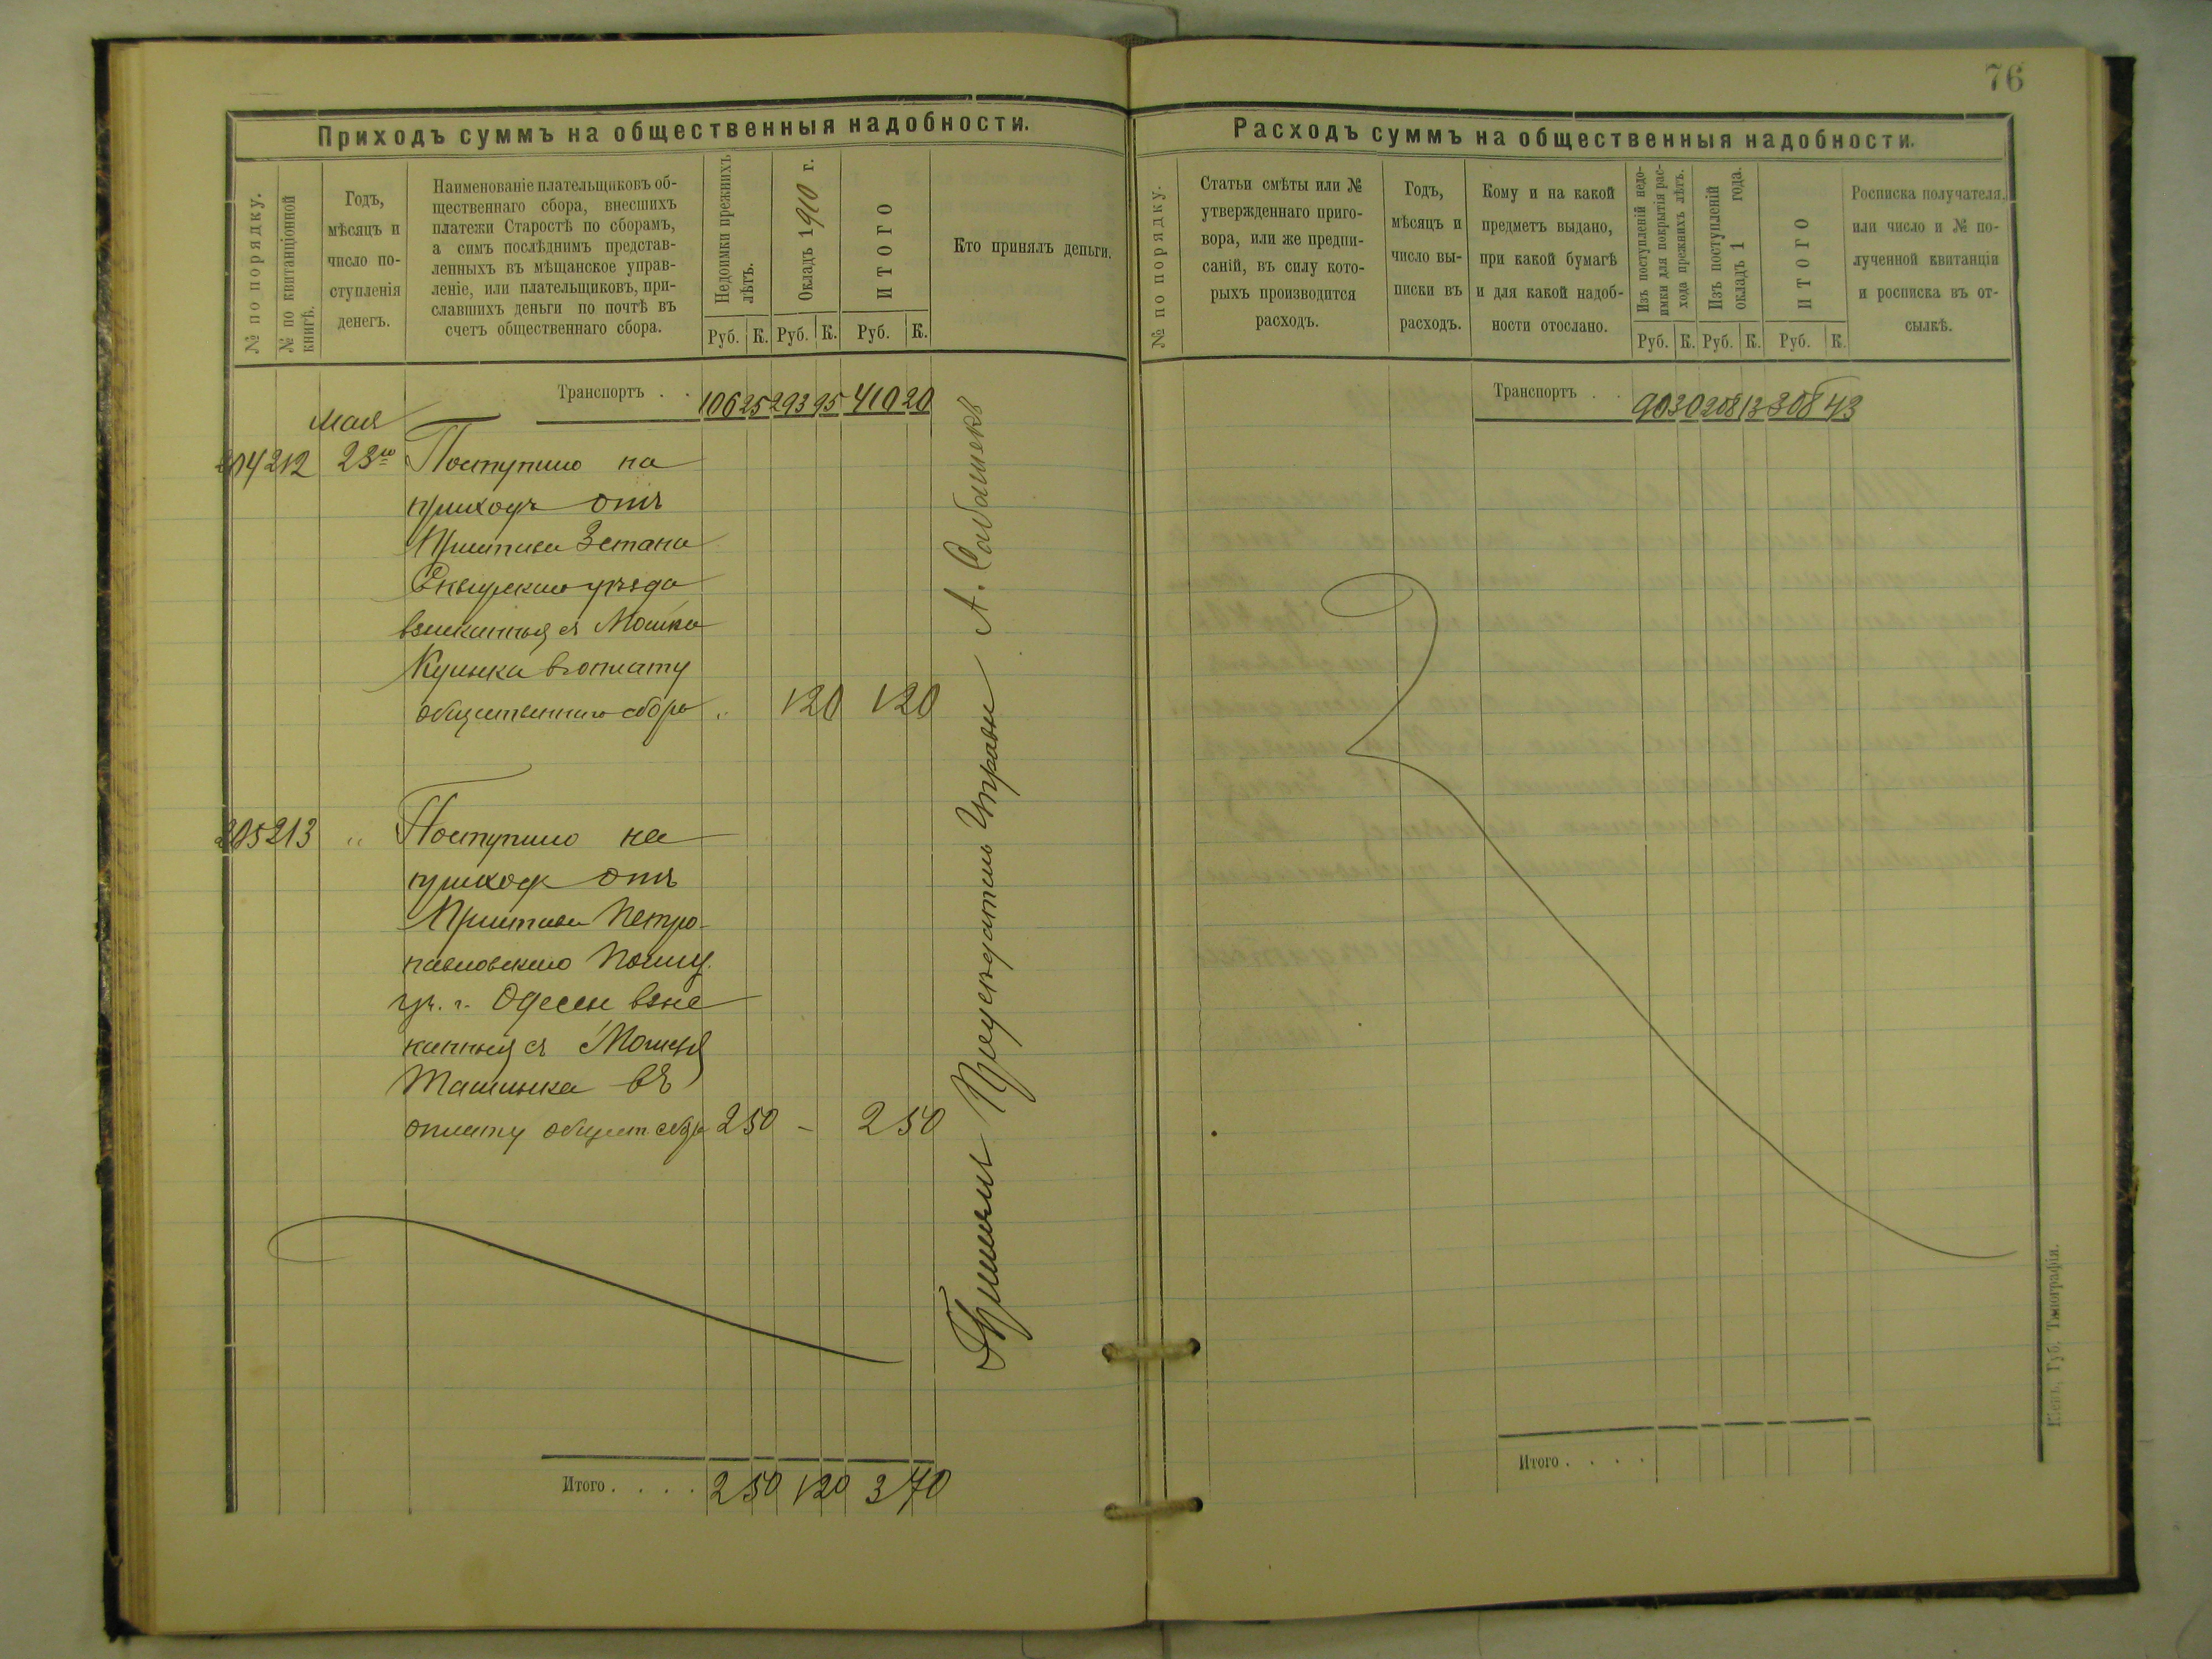 76
Приходъ суммъ на общественныя надобности.
№ по порядку.
№ по квитанціонной
книгѣ.
Годъ,
мѣсяцъ и
число по-
ступленія
денегъ.
Наименованіе плательщиковъ об-
щественнаго сбора, внесшихъ
платежи Старостѣ по сборамъ,
а симъ послѣднимъ представ-
ленныхъ въ мѣщанское управ-
леніе, или плательщиковъ, при-
славшихъ деньги по почтѣ въ
счетъ общественнаго сбора.
Недоимки прежнихъ
лѣтъ.
Окладъ 1910 г.
ИТОГО
Руб. К. Руб. К. Руб. К.
Кто принялъ деньги.
Транспортъ . . 106 25 293 95 410 20
Мая
204 212 23го Поступило на
приходъ отъ
Пристава 3 стана
Сквирскаго уѣзда
взысканныя съ Мошка
Кулика въ оплату
общественнаго сбора „ 1 20 1 20
205 213 „ Поступило на
приходъ отъ
Пристава Петро-
павловскаго Полиц.
уч. г. Одессы взыс
канныя съ
въ
оплату обществ. сбора 2 50 - 2 50
Итого . . . . 2 50 1 20 3 70
Принялъ Предсѣдатель Управы А.
Расходъ суммъ на общественныя надобности.
№ по порядку.
Статьи смѣты или №
утвержденнаго приго-
вора, или же предпи-
саній, въ силу кото-
рыхъ производится
расходъ.
Годъ,
мѣсяцъ и
число вы-
писки въ
расходъ.
Кому и на какой
предметъ выдано,
при какой бумагѣ
и для какой надоб-
ности отослано.
Изъ поступленій недо-
имки для покрытія рас-
хода прежнихъ лѣтъ.
Изъ поступленій
окладъ 1 года.
ИТОГО
Руб. К. Руб. К. Руб. К.
Росписка получателя,
или число и № по-
лученной квитанціи
и росписка въ от-
сылкѣ.
Транспортъ . . 90 30 208 13 308 43
Итого . . . .
Кіевъ, Губ. Типографія.